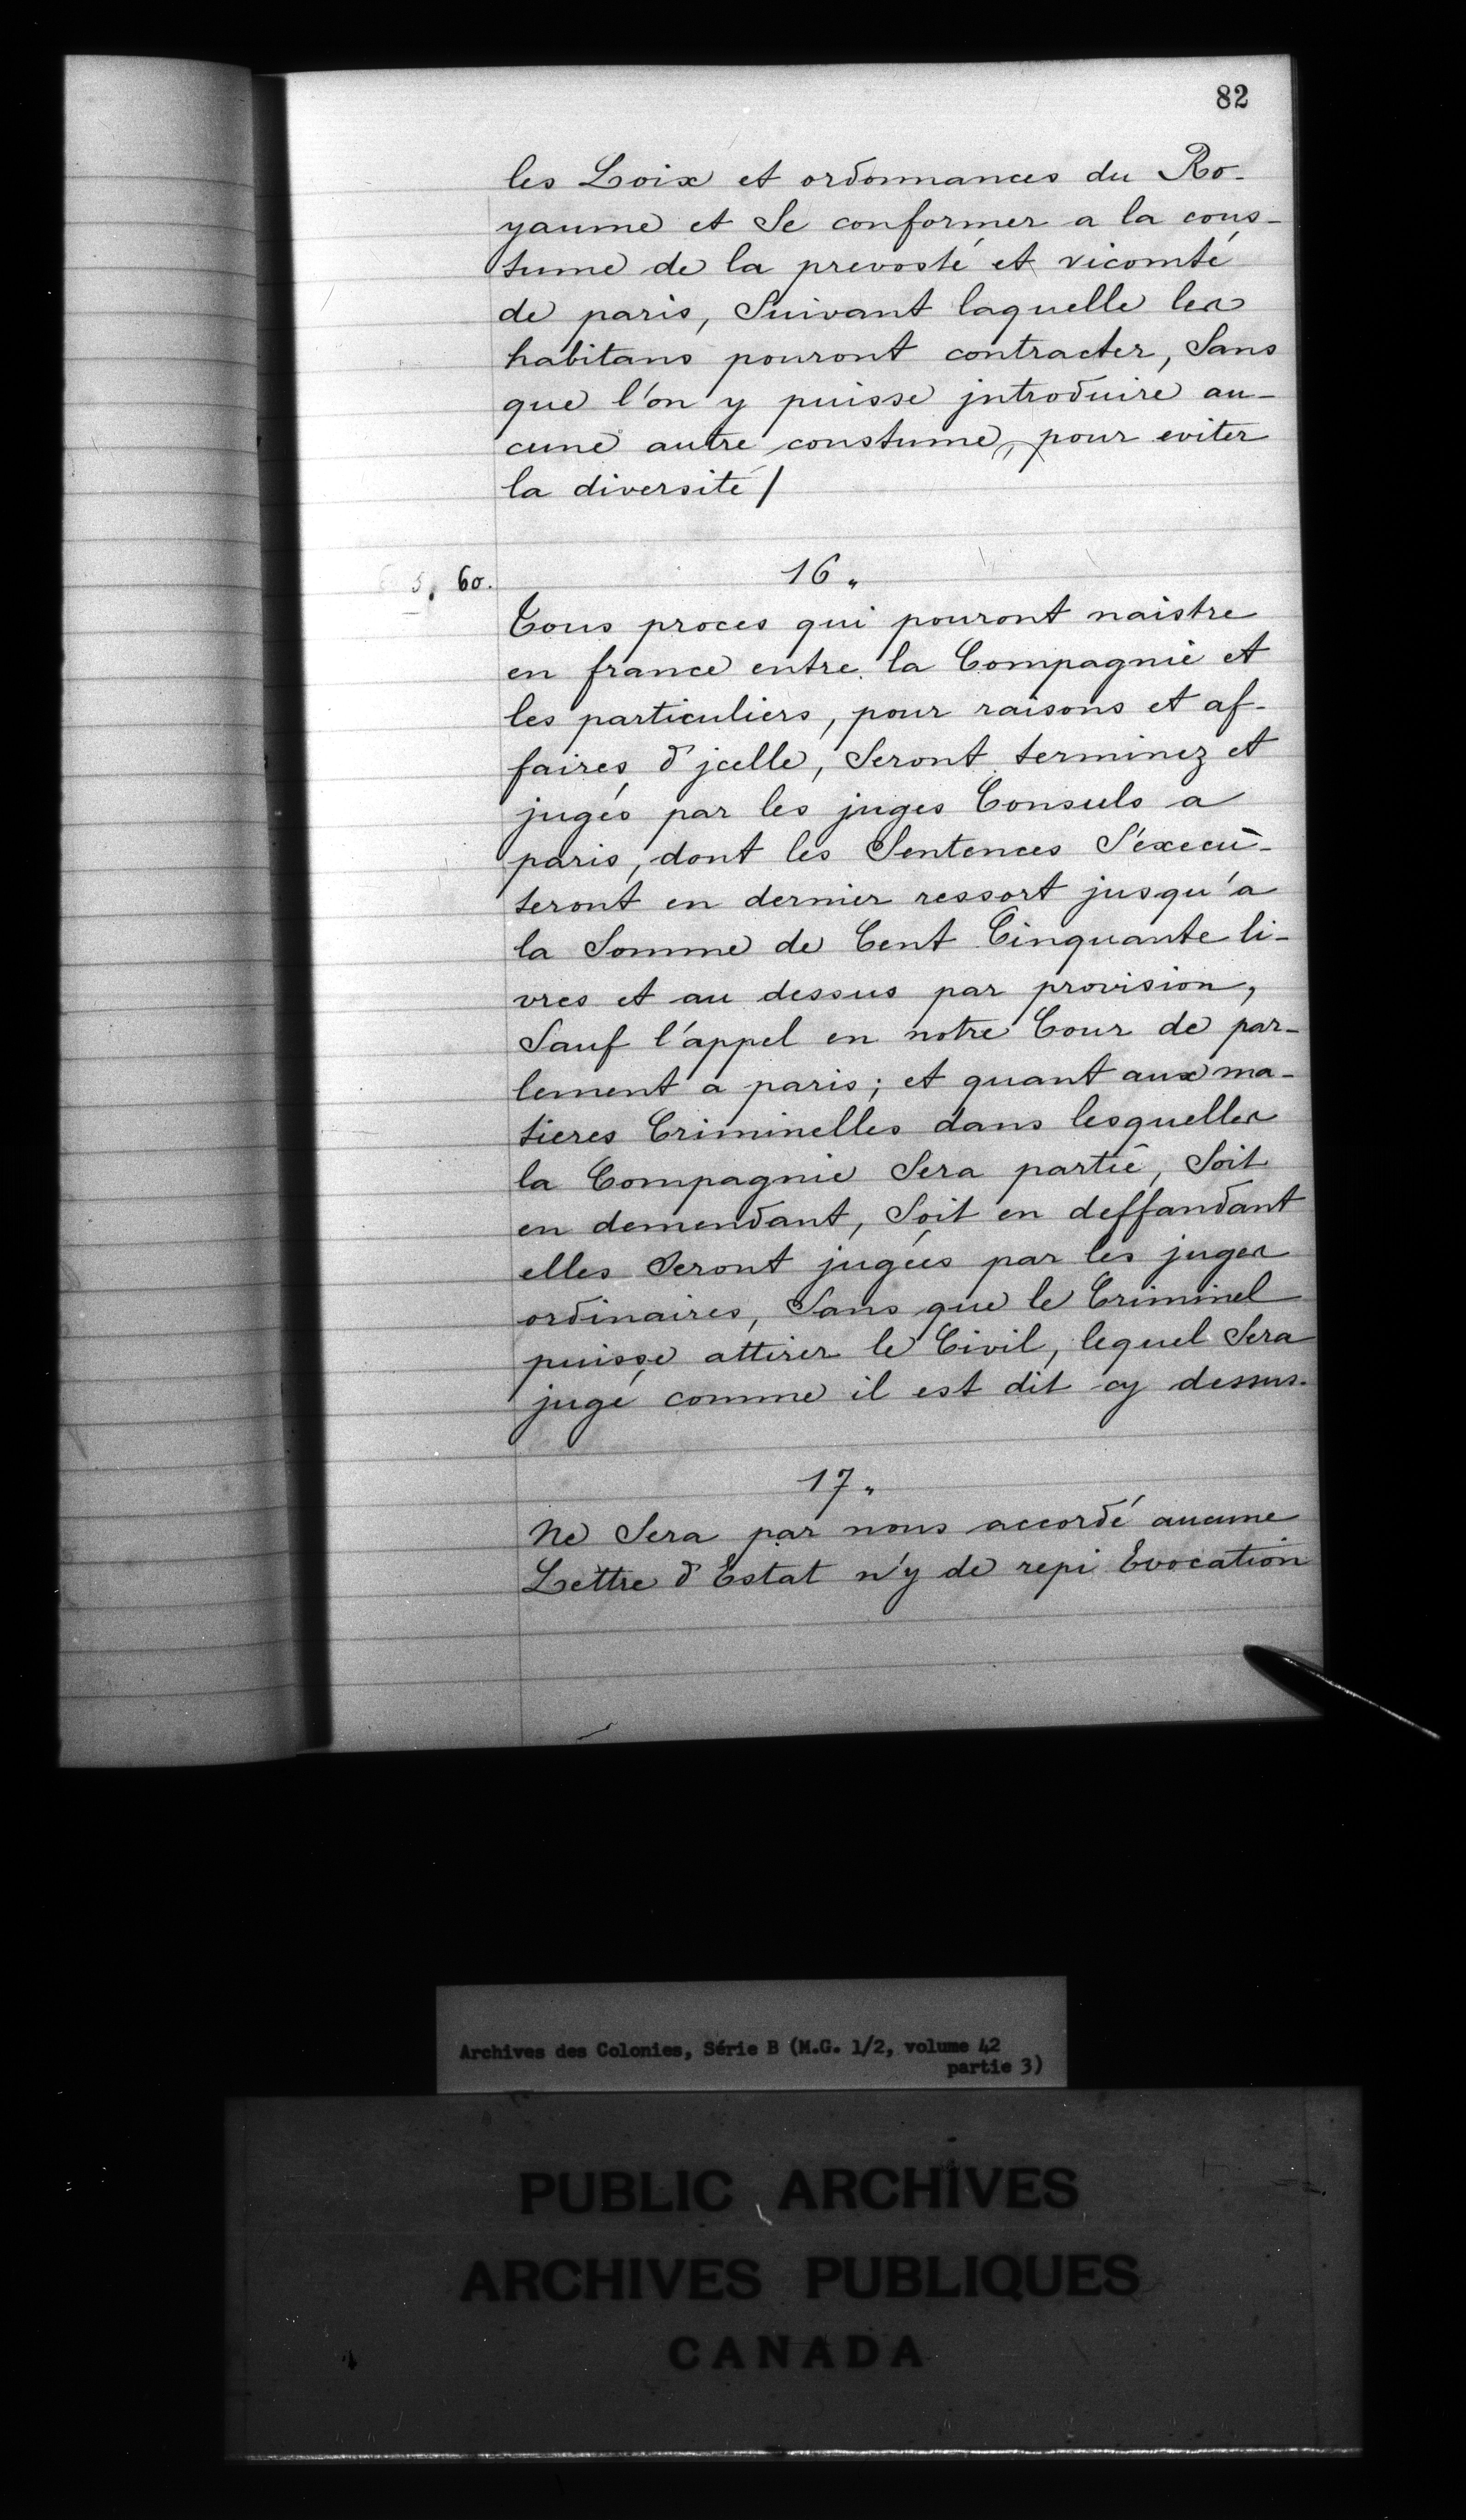 82
les Loix et ordonnances du Ro-
yaume et Se conformer a la cous-
tume de la prevosté et vicomté
de paris, Suivant laquelle les
habitans pouront contracter, Sans
que l'on y puisse jntroduire au-
cune autre constume, pour eviter
la diversité/
60.
16"
Tous proces qui pouront naistre
en france entre la Compagnie et
les particuliers, pour raisons et af-
faires d'jcelle, Seront terminez et
jugés par les juges Consuls a
paris, dont les Sentences S'éxecu-
teront en dernier ressort jusqu'a
la Somme de Cent Cinquante li-
vres et au dessus par provision,
Sauf l'appel en notre Cour de par-
lement a paris; et quant aux ma-
tieres Criminelles dans lesquelles
la Compagnie Sera partie, Soit
en demendant, Soit en deffandant
elles Seront jugées par les juges
ordinaires, Sans que le Criminel
puisse attirer le Civil, lequel Sera
jugé comme il est dit cy dessus.
17"
Ne Sera par nous accordé aucune
Lettre d'Estat n'y de repi Evocation
Archives des Colonies, Série B (M.G. 1/2, volume 42
partie 3)
PUBLIC ARCHIVES
ARCHIVES PUBLIQUES
CANADA